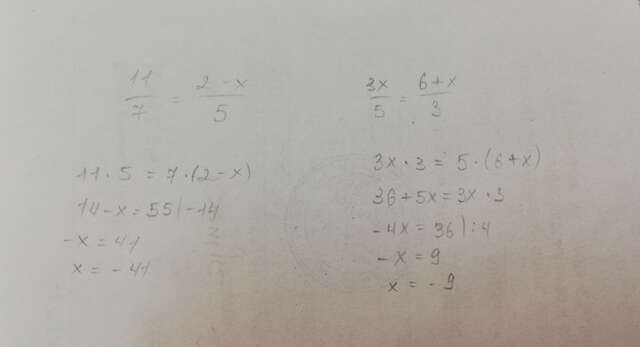 11/7 = 2-x/5
11·5 = 7·(2-x)
14-x=55|-14
-x = 41
x = -41
3x/5 = 6+x/3
3x·3 = 5·(6+x)
36+5x=3x·3
-4x=36|:4
-x=9
x=-9